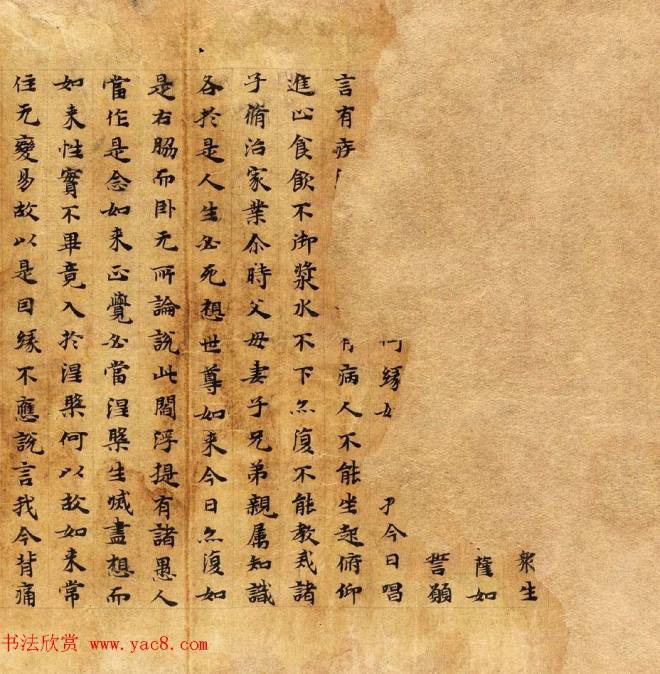 衆生
薩如
誓願
緣 今日唱
言有 病人不能坐起俯仰
進止食飲不御漿水不下亦復不能教戒諸
子脩治家業尒時父母妻子兄弟親属知識
各於是人生必死想世尊如来今日亦復如
是右脇而卧无所論說此閻浮提有諸愚人
當作是念如来正覺必當涅槃生滅盡想而
如来性實不畢竟入於涅槃何以故如来常
住无變易故以是因緣不應說言我今背痛
书法欣赏 www.yac8.com